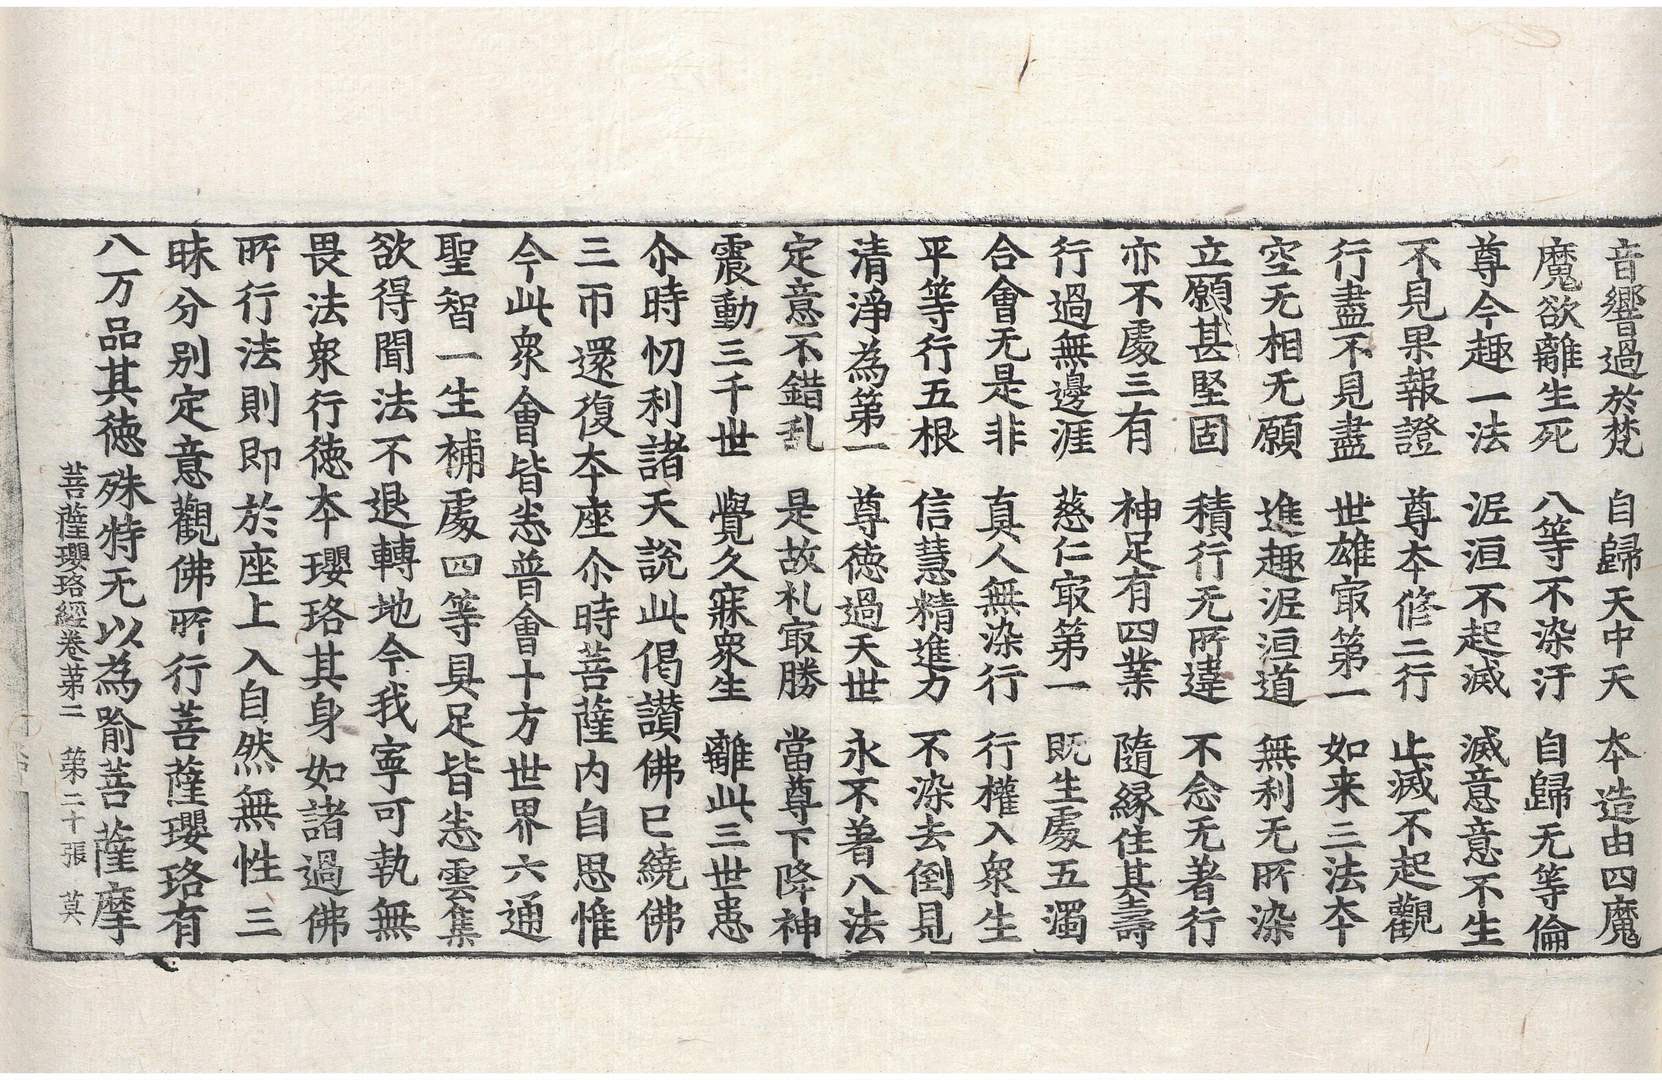 音響過於梵　自歸天中天　夲造由四魔
魔欲離生死　八等不染汙　自歸无等倫
尊今趣一法　泥洹不起滅　滅意意不生
不見果報證　尊夲修三行　止滅不起觀
行盡不見盡　世雄㝡第一　如来三法夲
空无相无願　進趣泥洹道　無利无所染
立願甚堅固　積行无所違　不念无著行
亦不處三有　神足有四業　隨緣住其壽
行過無邊涯　慈仁㝡第一　既生處五濁
合會无是非　真人無染行　行權入衆生
平等行五根　信慧精進力　不染去倒見
清淨為第一　尊德過天世　永不著八法
定意不錯乱　是故礼㝡勝　當尊下降神
震動三千世　覺久寐衆生　離此三世患
尒時忉利諸天說此偈讃佛已繞佛
三帀還復夲座尒時菩薩内自思惟
今此衆會皆悉普會十方世界六通
聖智一生補處四等具足皆悉雲集
欲得聞法不退轉地今我寧可執無
畏法衆行徳夲瓔珞其身如諸過佛
所行法則即於座上入自然無性三
昧分別定意觀佛所行菩薩瓔珞有
八万品其徳殊特无以為喻菩薩摩
菩薩瓔珞經卷苐二　第二十張　莫